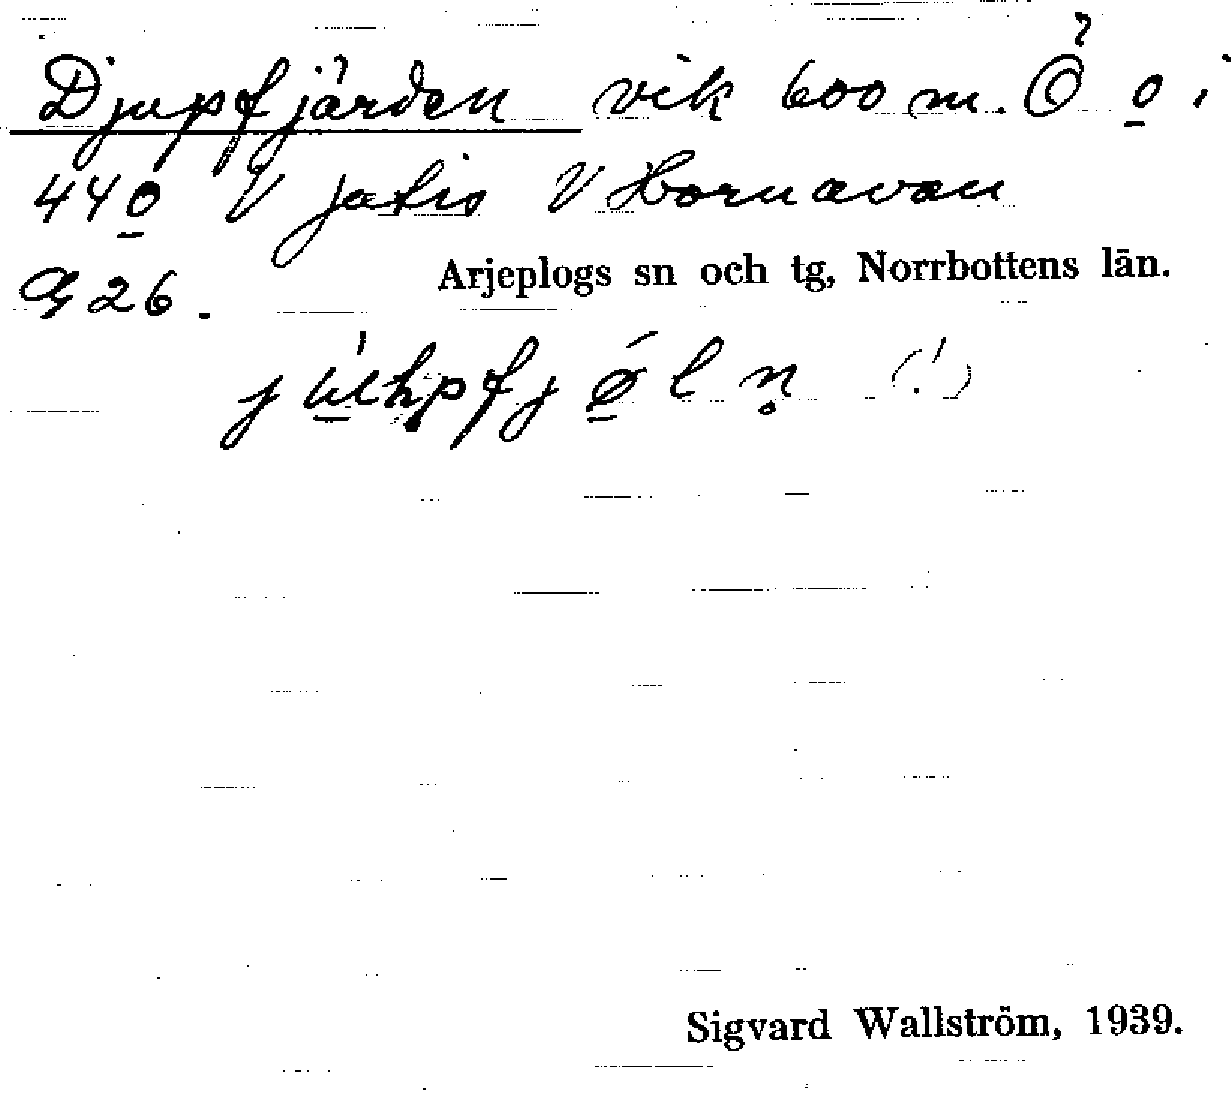 Djupfjärden vik 600 m. Ö o i
440 V Jatis V Hornavan
G 26.
Arjeplogs sn och tg, Norrbottens län.
(!)
Sigvard Wallström, 1939.